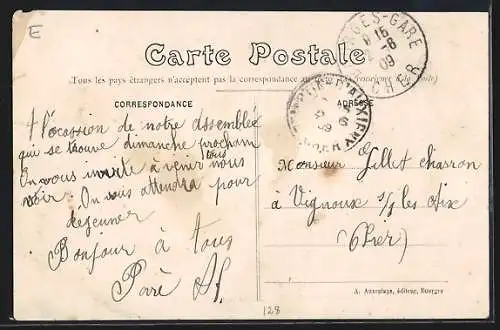 E
Carte Postale
Tous les pays étrangers n'acceptent pas la correspondance au
CORRESPONDANCE
ADRESSE
GES-GARE
8 15
-6
09
CHER
A l'occasion de notre assemblée
qui se trouve dimanche prochain
On vous invite à venir tous nous
voir. On vous attendra pour
déjeuner
Bonjour à tous
Paré
Monsieur Gillet charron
à Vignoux s/s les Aix
(Cher)
A. Auxenfans, éditeur, Bourges
128